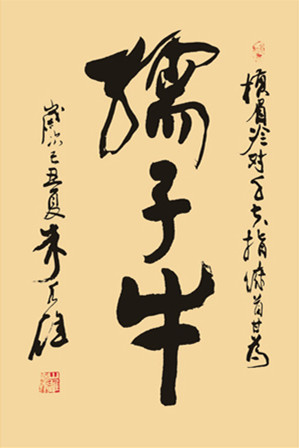 横眉冷对千夫指俯首甘為
孺子牛
歲次己丑夏